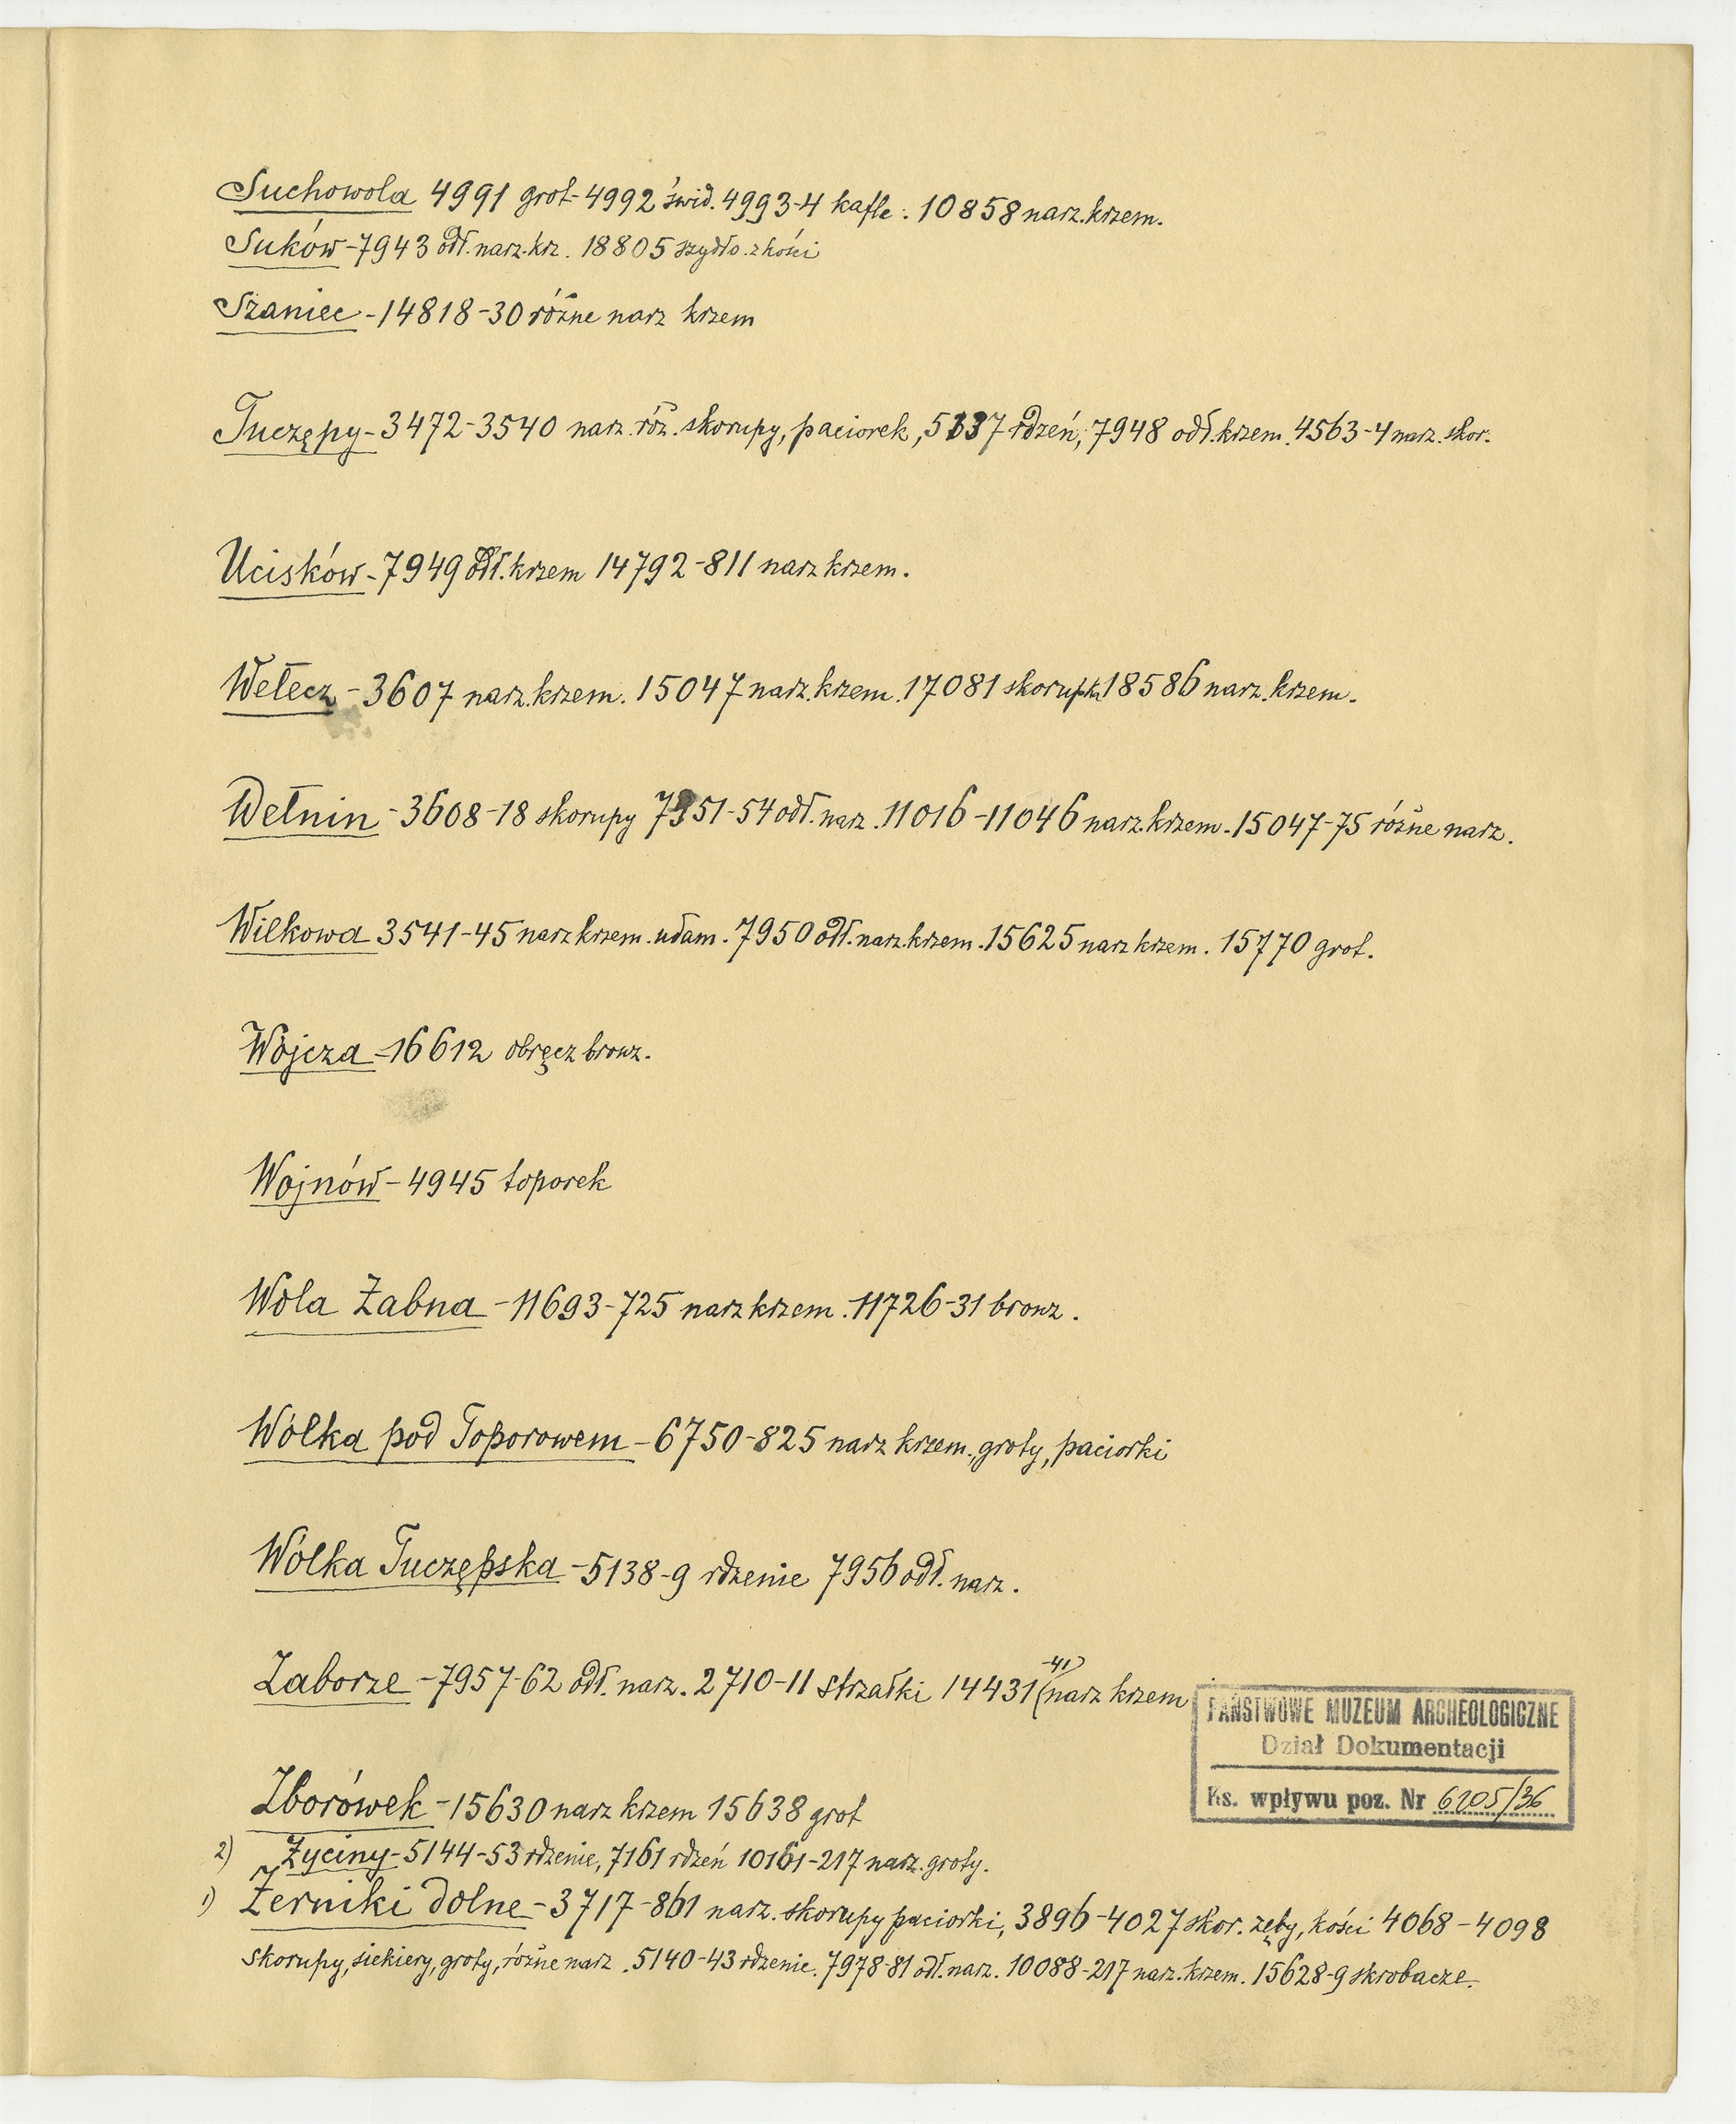 Suchowola 4991 grot - 4992 świd. 4993-4 kafle. 10858 narz. krzem.
Suków - 7943 odł. narz. krz. 18805 szydło z kości
Szaniec - 14818-30 różne narz krzem
Tuczępy - 3472-3540 narz. róż. skorupy, paciorek, 5137 rdzeń, 7948 odł. krzem. 4563-4 narz. skor.
Ucisków - 7949 odł. krzem 14792-811 narz krzem.
Wełecz - 3607 narz. krzem. 15047 narz. krzem. 17081 skorupka 18586 narz. krzem.
Wełnin - 3608-18 skorupy 7951-54 odł. narz. 11016-11046 narz. krzem. 15047-75 różne narz.
Wilkowa 3541-45 narz krzem. ułam. 7950 odł. narz. krzem. 15625 narz krzem. 15770 grot.
Wójcza - 16612 obręcz bronz.
Wojnów - 4945 toporek
Wola Żabna - 11693-725 narz krzem. 11726-31 bronz.
Wólka pod Toporowem - 6750-825 narz krzem., groty, paciorki
Wólka Tuczępska - 5138-9 rdzenie 7956 odł. narz.
Zaborze - 7957-62 odł. narz. 2710-11 strzałki 14431(-41) narz krzem
PAŃSTWOWE MUZEUM ARCHEOLOGICZNE
Dział Dokumentacji
Ks. wpływu poz. Nr 6205/36
Zborówek - 15630 narz krzem 15638 grot
2) Życiny - 5144-53 rdzenie, 7161 rdzeń 10161-217 narz. groty.
1) Żerniki dolne - 3717-861 narz. skorupy paciorki, 3896-4027 skor. zęby, kości 4068-4098
skorupy, siekiery, groty, różne narz. 5140-43 rdzenie. 7978-81 odł. narz. 10088-217 narz. krzem. 15628-9 skrobacze.